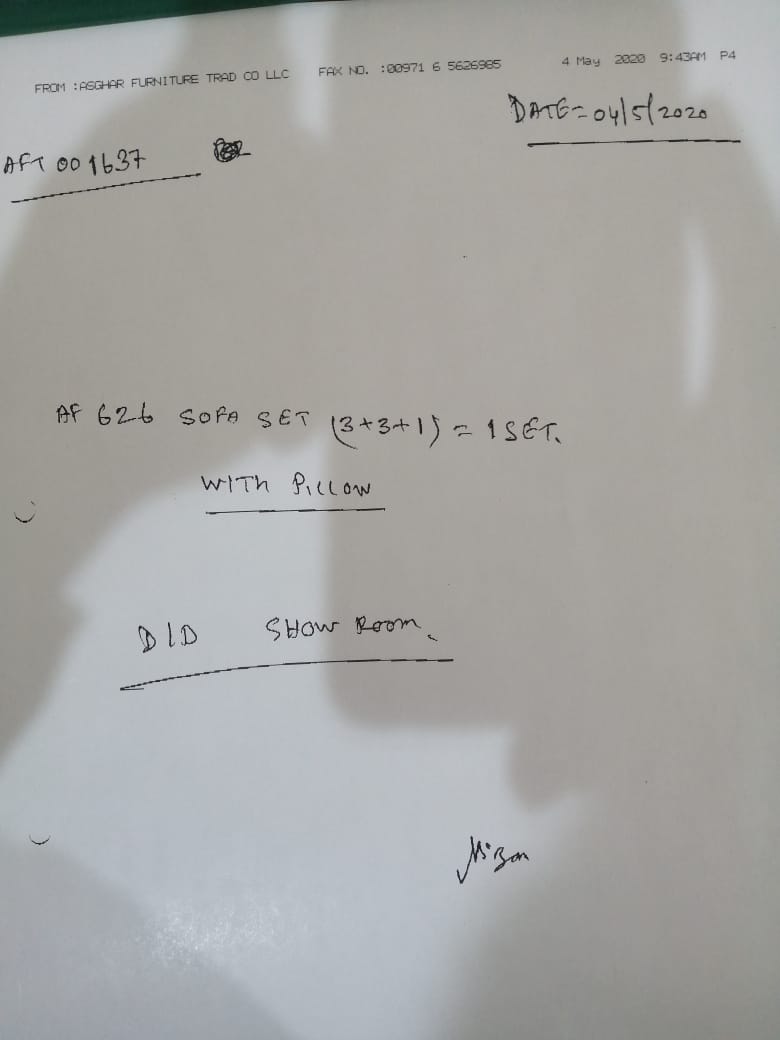 FROM :ASGHAR FURNITURE TRAD CO LLC FAX NO. :00971 6 5626985 4 May 2020 9:43AM P4
DATE=04/5/2020
AFT 001637
AF 626 SOFA SET (3+3+1) = 1 SET.
WITH PILLOW
DID SHOW ROOM.
Mizan